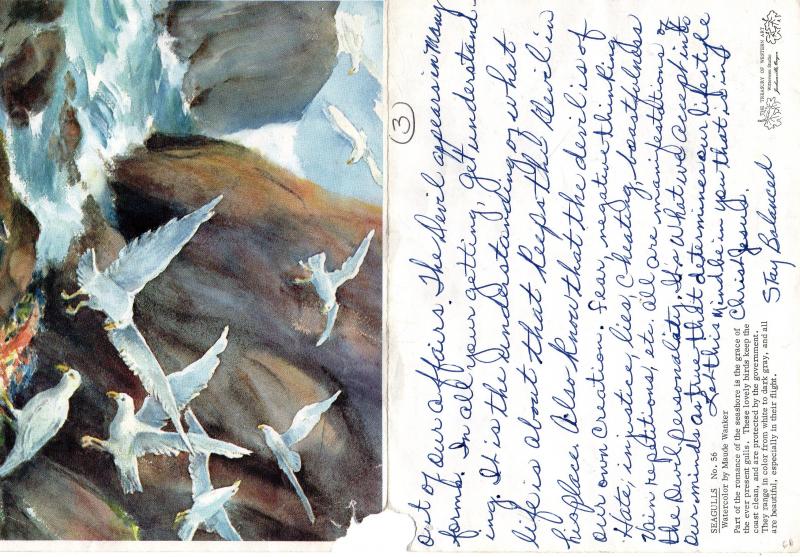 3
out of our affairs. The Devil appears in Many
forms. In all your getting, get understand-
ing. It's the Understanding of what
life is about that keeps the Devil in
his place. Also know that the devil is of
our own creation. Fear, negative thinking
Hate, injustice, lies, cheating, boastfulness
Vain repetitions, etc. all are manifestations of
the Devil personality. It's what we accept into
our minds as true that determines our lifestyle
Let this Mind be in you that is in
Christ Jesus.
Stay Balanced
SEAGULLS No. 56
Watercolor by Maude Wanker
Part of the romance of the seashore is the grace of
the ever present gulls. These lovely birds keep the
coast clean, and are protected by the government.
They range in color from white to dark gray, and all
are beautiful, especially in their flight.
THE TREASURY OF WESTERN ART